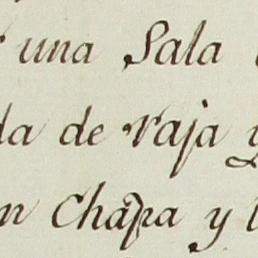 una Sala
da de raja y
n Chapa y